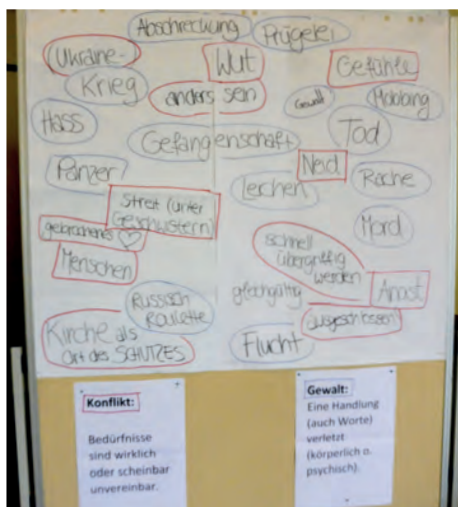 Abschreckung
Prügelei
Ukraine-
Krieg
Wut
Gefühle
anders sein
Gewalt
Mobbing
Hass
Gefangenschaft
Tod
Panzer
Neid
Leichen
Rache
Streit (unter
Geschwistern)
gebrochenes
Mord
Menschen
schnell
übergriffig
werden
gleichgültig
Angst
Russisch
Roulette
ausgeschlossen
Kirche als
Ort des SCHUTZES
Flucht
Konflikt:
Bedürfnisse
sind wirklich
oder scheinbar
unvereinbar.
Gewalt:
Eine Handlung
(auch Worte)
verletzt
(körperlich o.
psychisch).